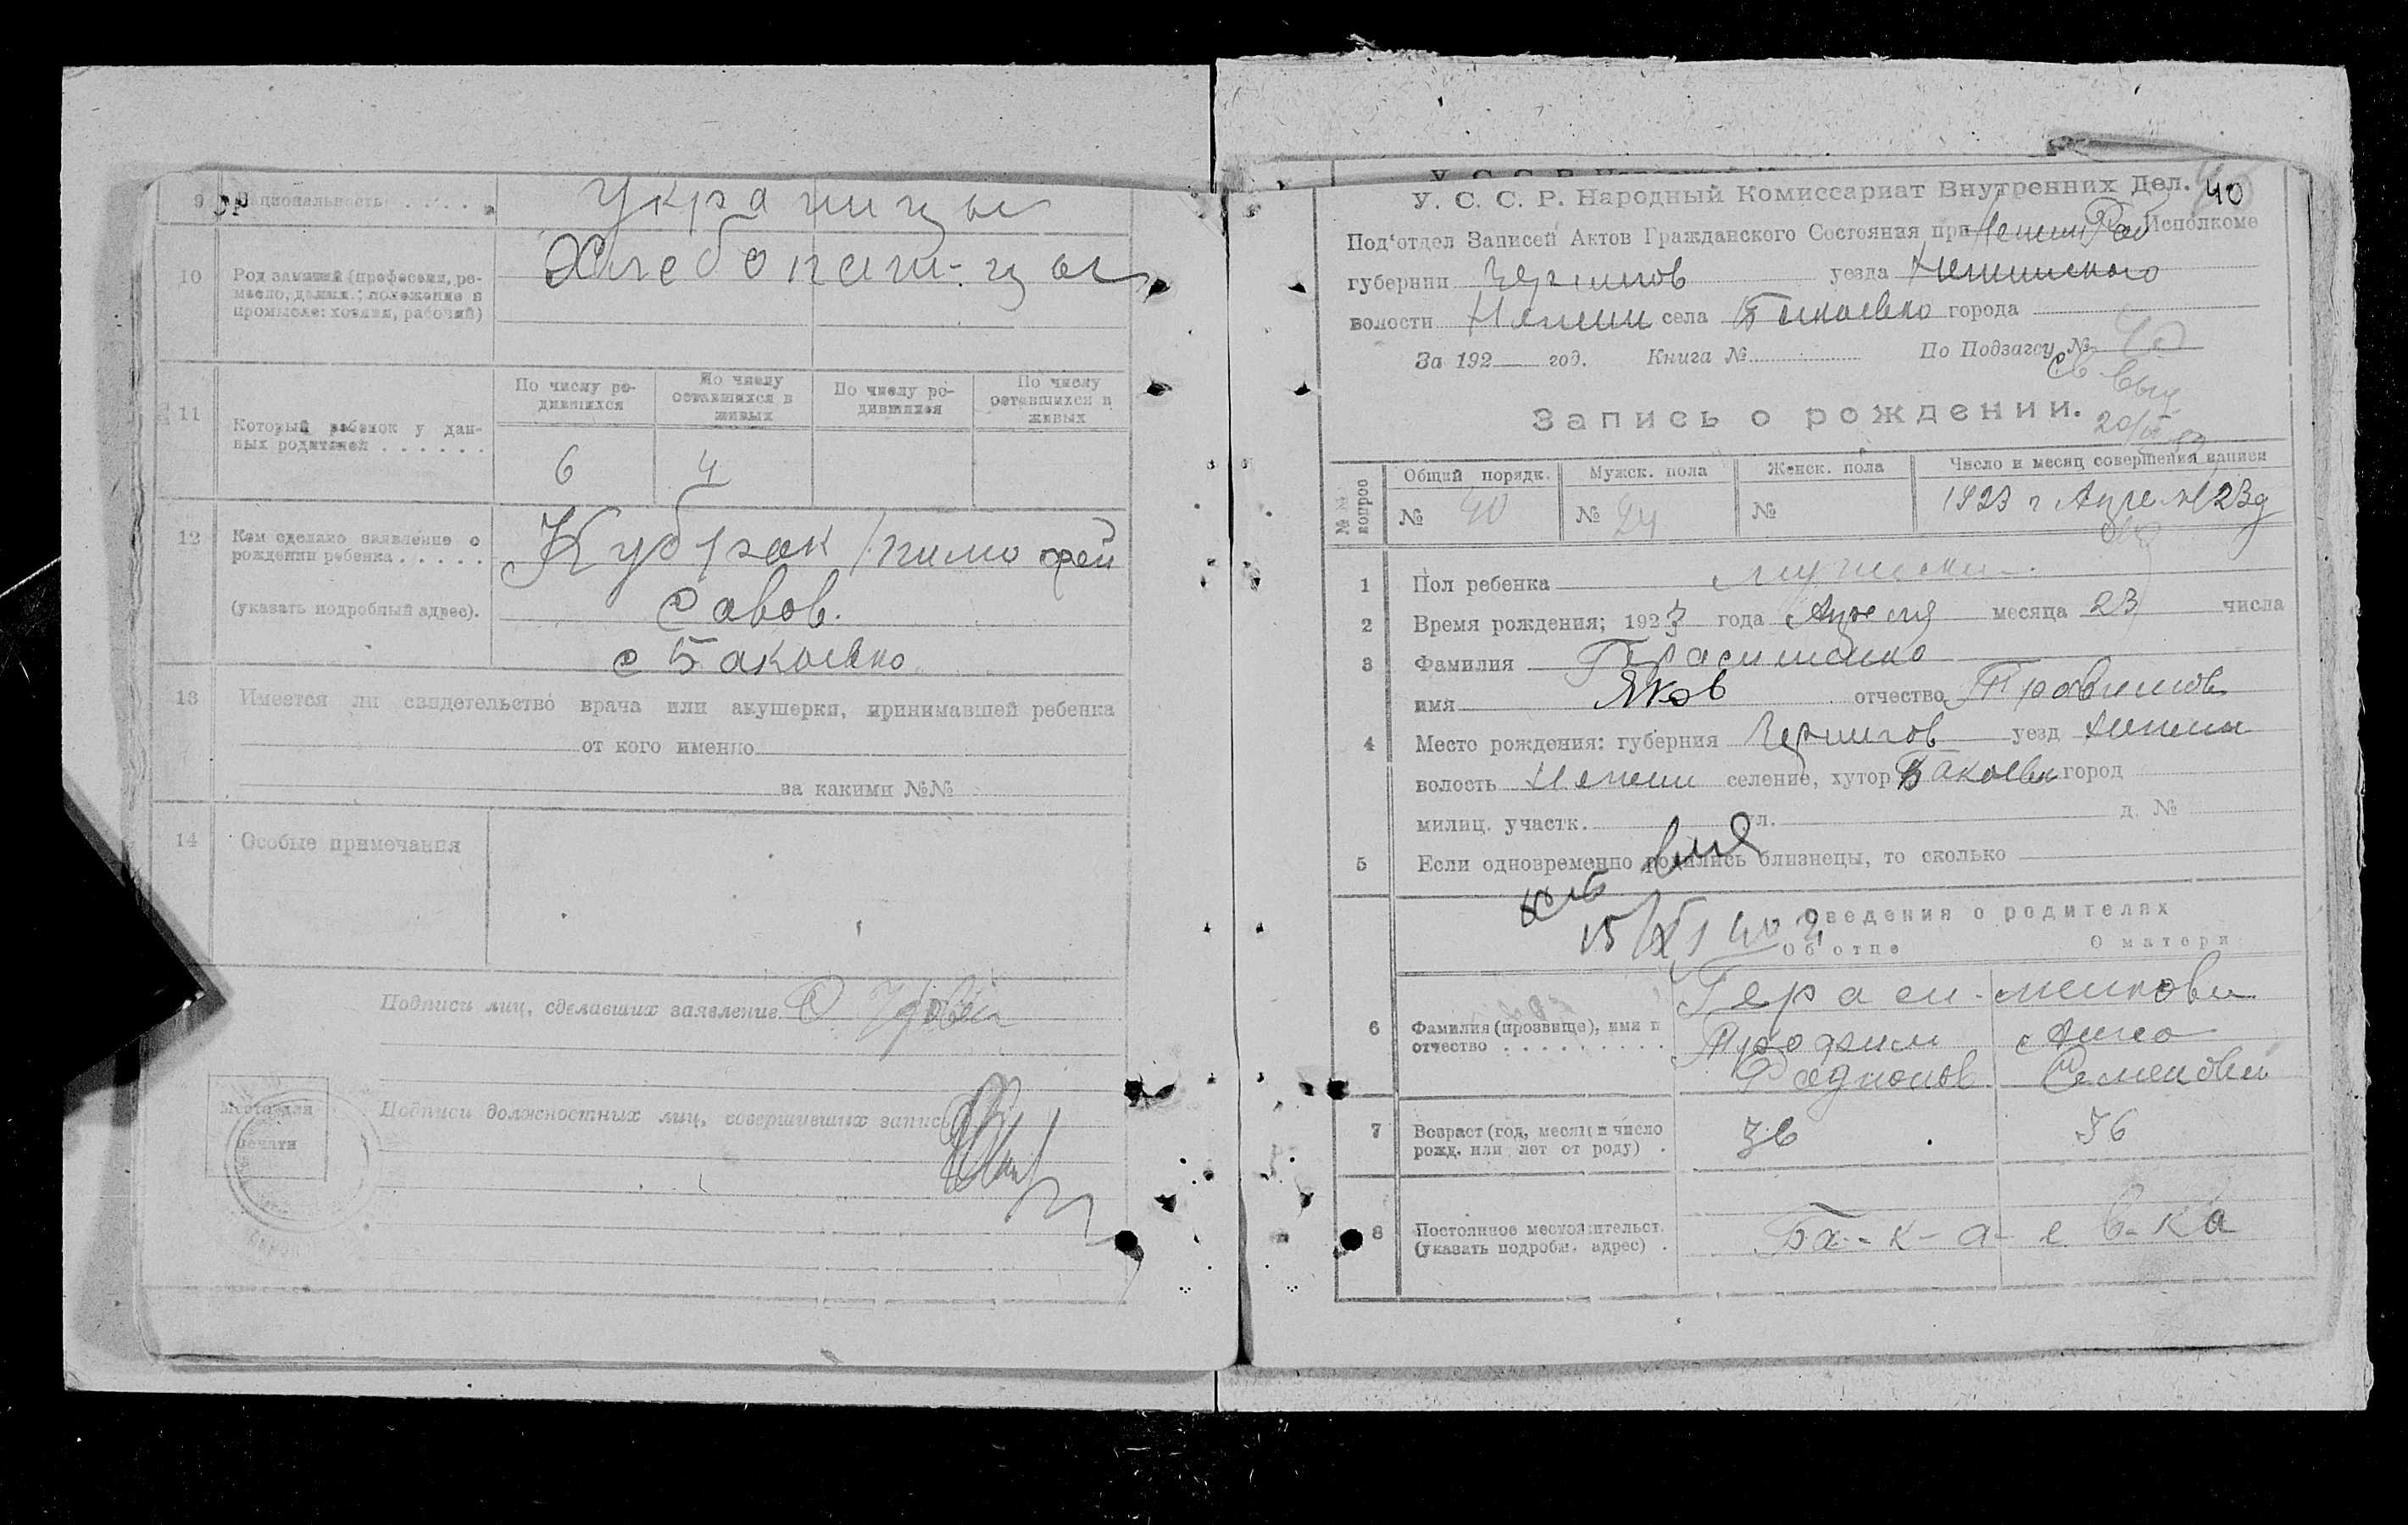 9 Национальность . . . . . Украинцы
10 Род занятий (профессия, ре-
месло, должн.; положение в
промысле: хозяин, рабочий)
Хлебопаш-цы
11 Который ребенок у дан-
ных родителей . . . . . .
По числу ро-
дившихся
По числу
оставшихся в
живых
По числу ро-
дившихся
По числу
оставшихся в
живых
6 4
12 Кем сделано заявление о
рождении ребенка . . . . .
(указать подробный адрес).
Кубрак Тимофей
Савов.
с Бакаевка
13 Имеется ли свидетельство врача или акушерки, принимавшей ребенка
от кого именно
за какими №№
14 Особые примечания
Подписи лиц, сделавших заявление
Место для
печати
Подписи должностных лиц, совершивших запись
У. С. С. Р. Народный Комиссариат Внутренних Дел. 40
Под'отдел Записей Актов Гражданского Состояния при Нежин Рай Исполкоме
губернии Чернигов уезда Неженского
волости Нежин села Бакаевка города
За 192 год. Книга № По Подзагсу № 40
Запись о рождении.
№№ вопрос
Общий порядк. Мужск. пола Женск. пола Число и месяц совершения записи
№ 40 № 24 № 1923 г Апреля 23д
1 Пол ребенка мужской.
2 Время рождения; 1923 года Апреля месяца 23 числа
3 Фамилия Герасименко
имя Яков отчество Трофимов
4 Место рождения: губерния Чернигов уезд Нежин
волость Нежин селение, хутор Бакаевк город
милиц. участк. ул. д. №
5 Если одновременно родились близнецы, то сколько
15/XI 40 г
Сведения о родителях
Об отце О матери
6 Фамилия (прозвище), имя и
отчество . . . . . . . . .
Гераси-менковы
Трофим Анна
Радионов Семеновна
7 Возраст (год, месяц и число
рожд. или лет от роду) .
36 36
8 Постоянное местожительст.
(указать подробн. адрес) .
Ба-к-а-е в-ка